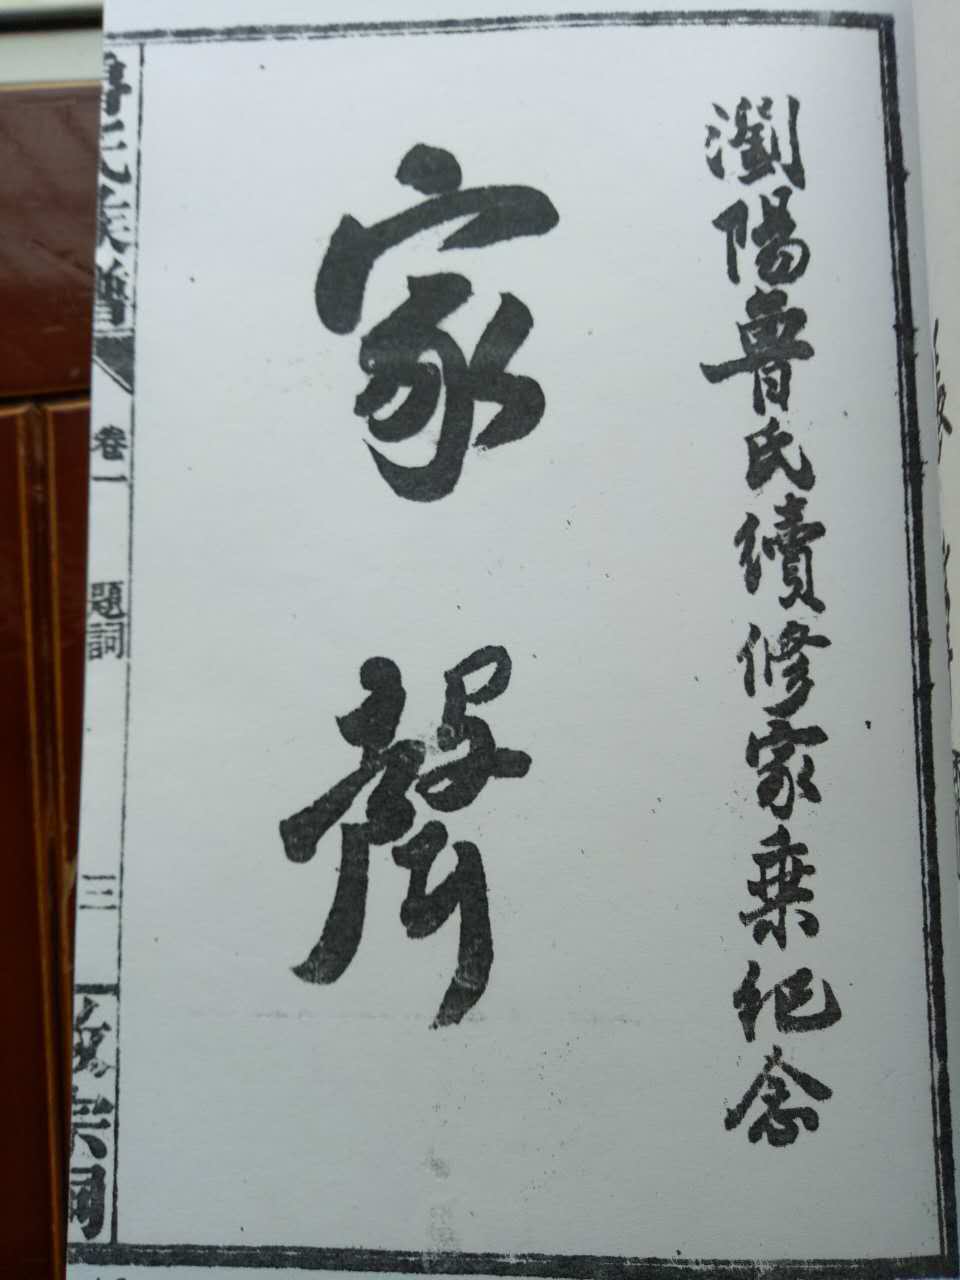 瀏陽魯氏續修家乘紀念
家聲
魯氏族譜
卷一
題詞
三
宗祠